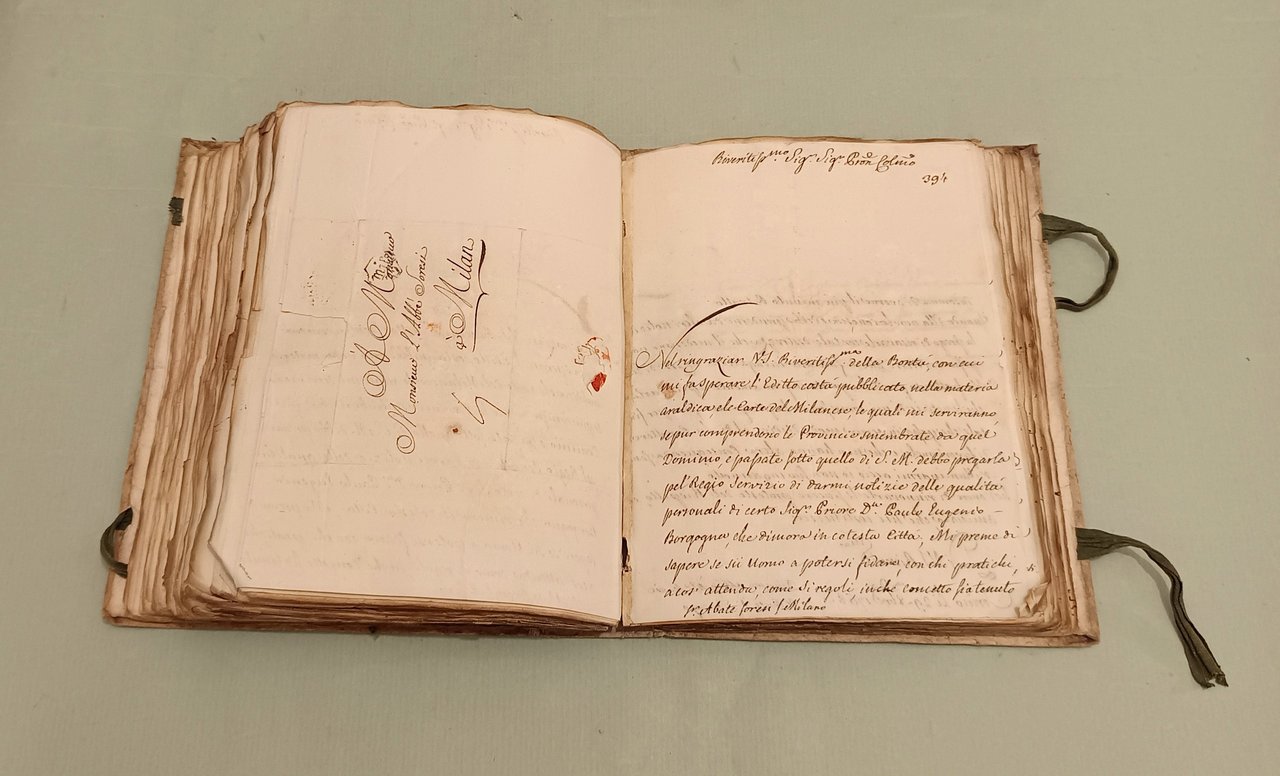 À Monsieur
Monsieur L'Abbé Soresi
à Milan
Riveritiss.mo Sig.r Sig.r Pron Colmo
394
Nel ringraziar V.S. Riveritiss.ma della Bontà, con cui
mi fa sperare l'Editto costà pubblicato nella materia
araldica, e le Carte del Milanese, le quali mi serviranno,
se pur comprendono le Provincie smembrate da quel
Dominio, e passate sotto quello di S. M. debbo pregarla
pel Regio servizio di darmi notizie delle qualità
personali di certo Sig.r Priore D.n Paulo Eugenio
Borgogna, che dimora in cotesta Città, Mi preme di
sapere se sii Uomo a potersi fidare, con chi pratichi,
a cos' attenda, come si regoli, in che concetto sia tenuto
Sr. Abate Soresi Milano